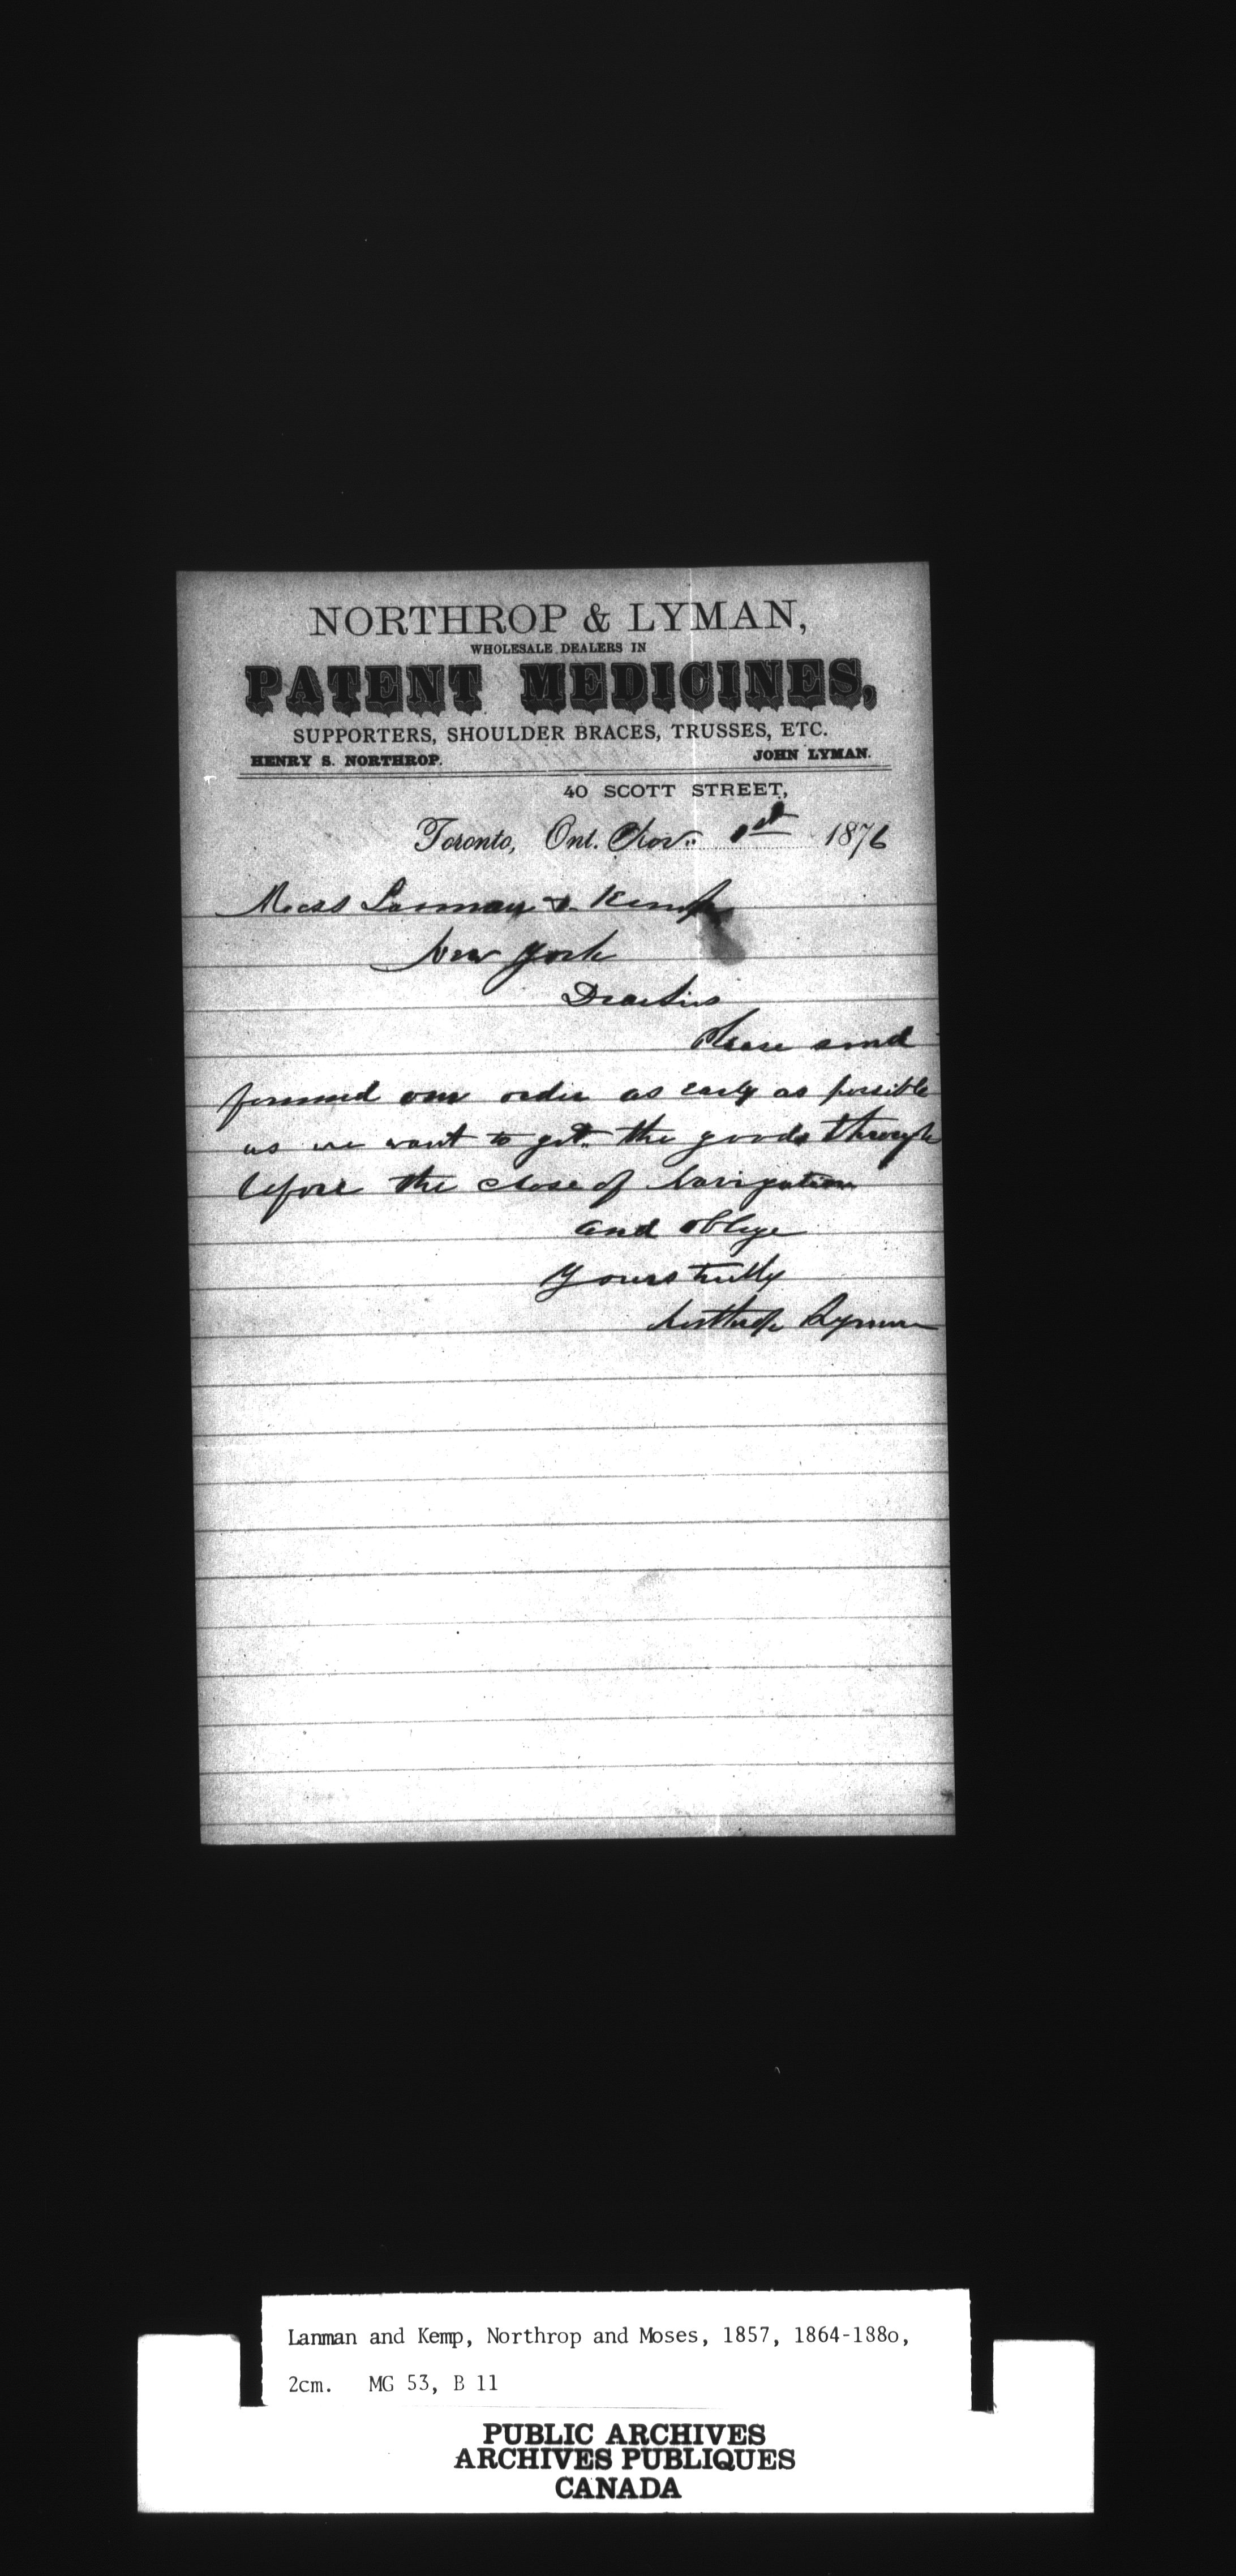 NORTHROP & LYMAN,
WHOLESALE DEALERS IN
PATENT MEDICINES,
SUPPORTERS, SHOULDER BRACES, TRUSSES, ETC.
HENRY S. NORTHROP. JOHN LYMAN.
40 SCOTT STREET,
Toronto, Ont. Nov. 1st 1876
Mess Lanman & Kemp
New York
Dear Sirs
Please send
forward our order as early as possible
as we want to get the goods through
before the close of Navigation
and oblige
Yours truly
Northrop Lyman
Lanman and Kemp, Northrop and Moses, 1857, 1864-188o,
2cm. MG 53, B 11
PUBLIC ARCHIVES
ARCHIVES PUBLIQUES
CANADA